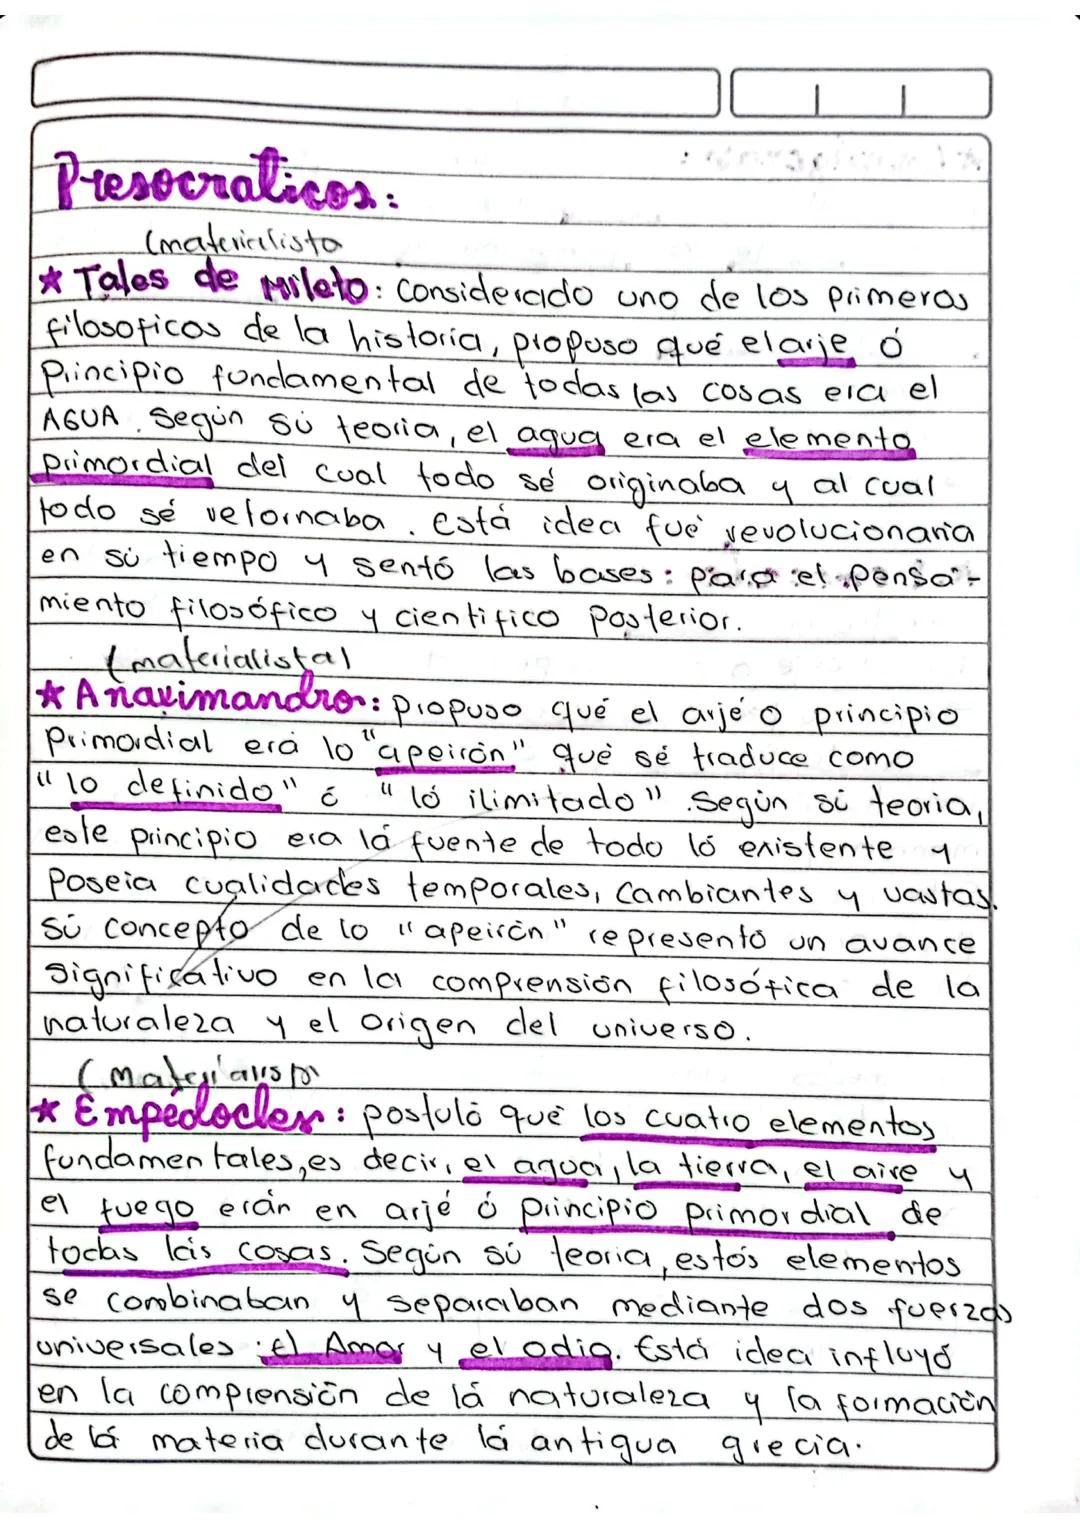 Presocraticos:
(materialista
★ Tales de Mileto: Considerado uno de los primeros
filosoficos de la historia, propuso qué el arje ó
Principio fundamental de todas las cosas era el
AGUA. Según sú teoria, el agua era el elemento
primordial del cual todo sé originaba y al cual
todo sé retornaba. está idea fué revolucionaria
en sú tiempo y sentó las bases: para el pensa-
miento filosófico y cientifico Posterior.
(materialista)
★ Anaximandro: Propuso qué el arjé o principio
Primordial erá lo "apeirón" qué sé traduce como
"lo definido" ó "ló ilimitado". Según sú teoria,
este principio era lá fuente de todo ló existente y
Poseia cualidades temporales, Cambiantes y vastas.
Sú concepto de lo "apeirón" representó un avance
Significativo en la comprensión filosófica de la
naturaleza y el origen del universo.
(Materialista
★ Empédocles: postuló qué los cuatro elementos
fundamentales, es decir, el agua, la tierra, el aire y
el fuego erán en arjé ó Principio Primordial de
todas lás cosas. Según sú teoria, estós elementos
se combinaban y separaban mediante dos fuerzas
universales: el Amor y el odio. Está idea influyó
en la comprensión de lá naturaleza y la formación
de lá materia durante lá antigua grecia.